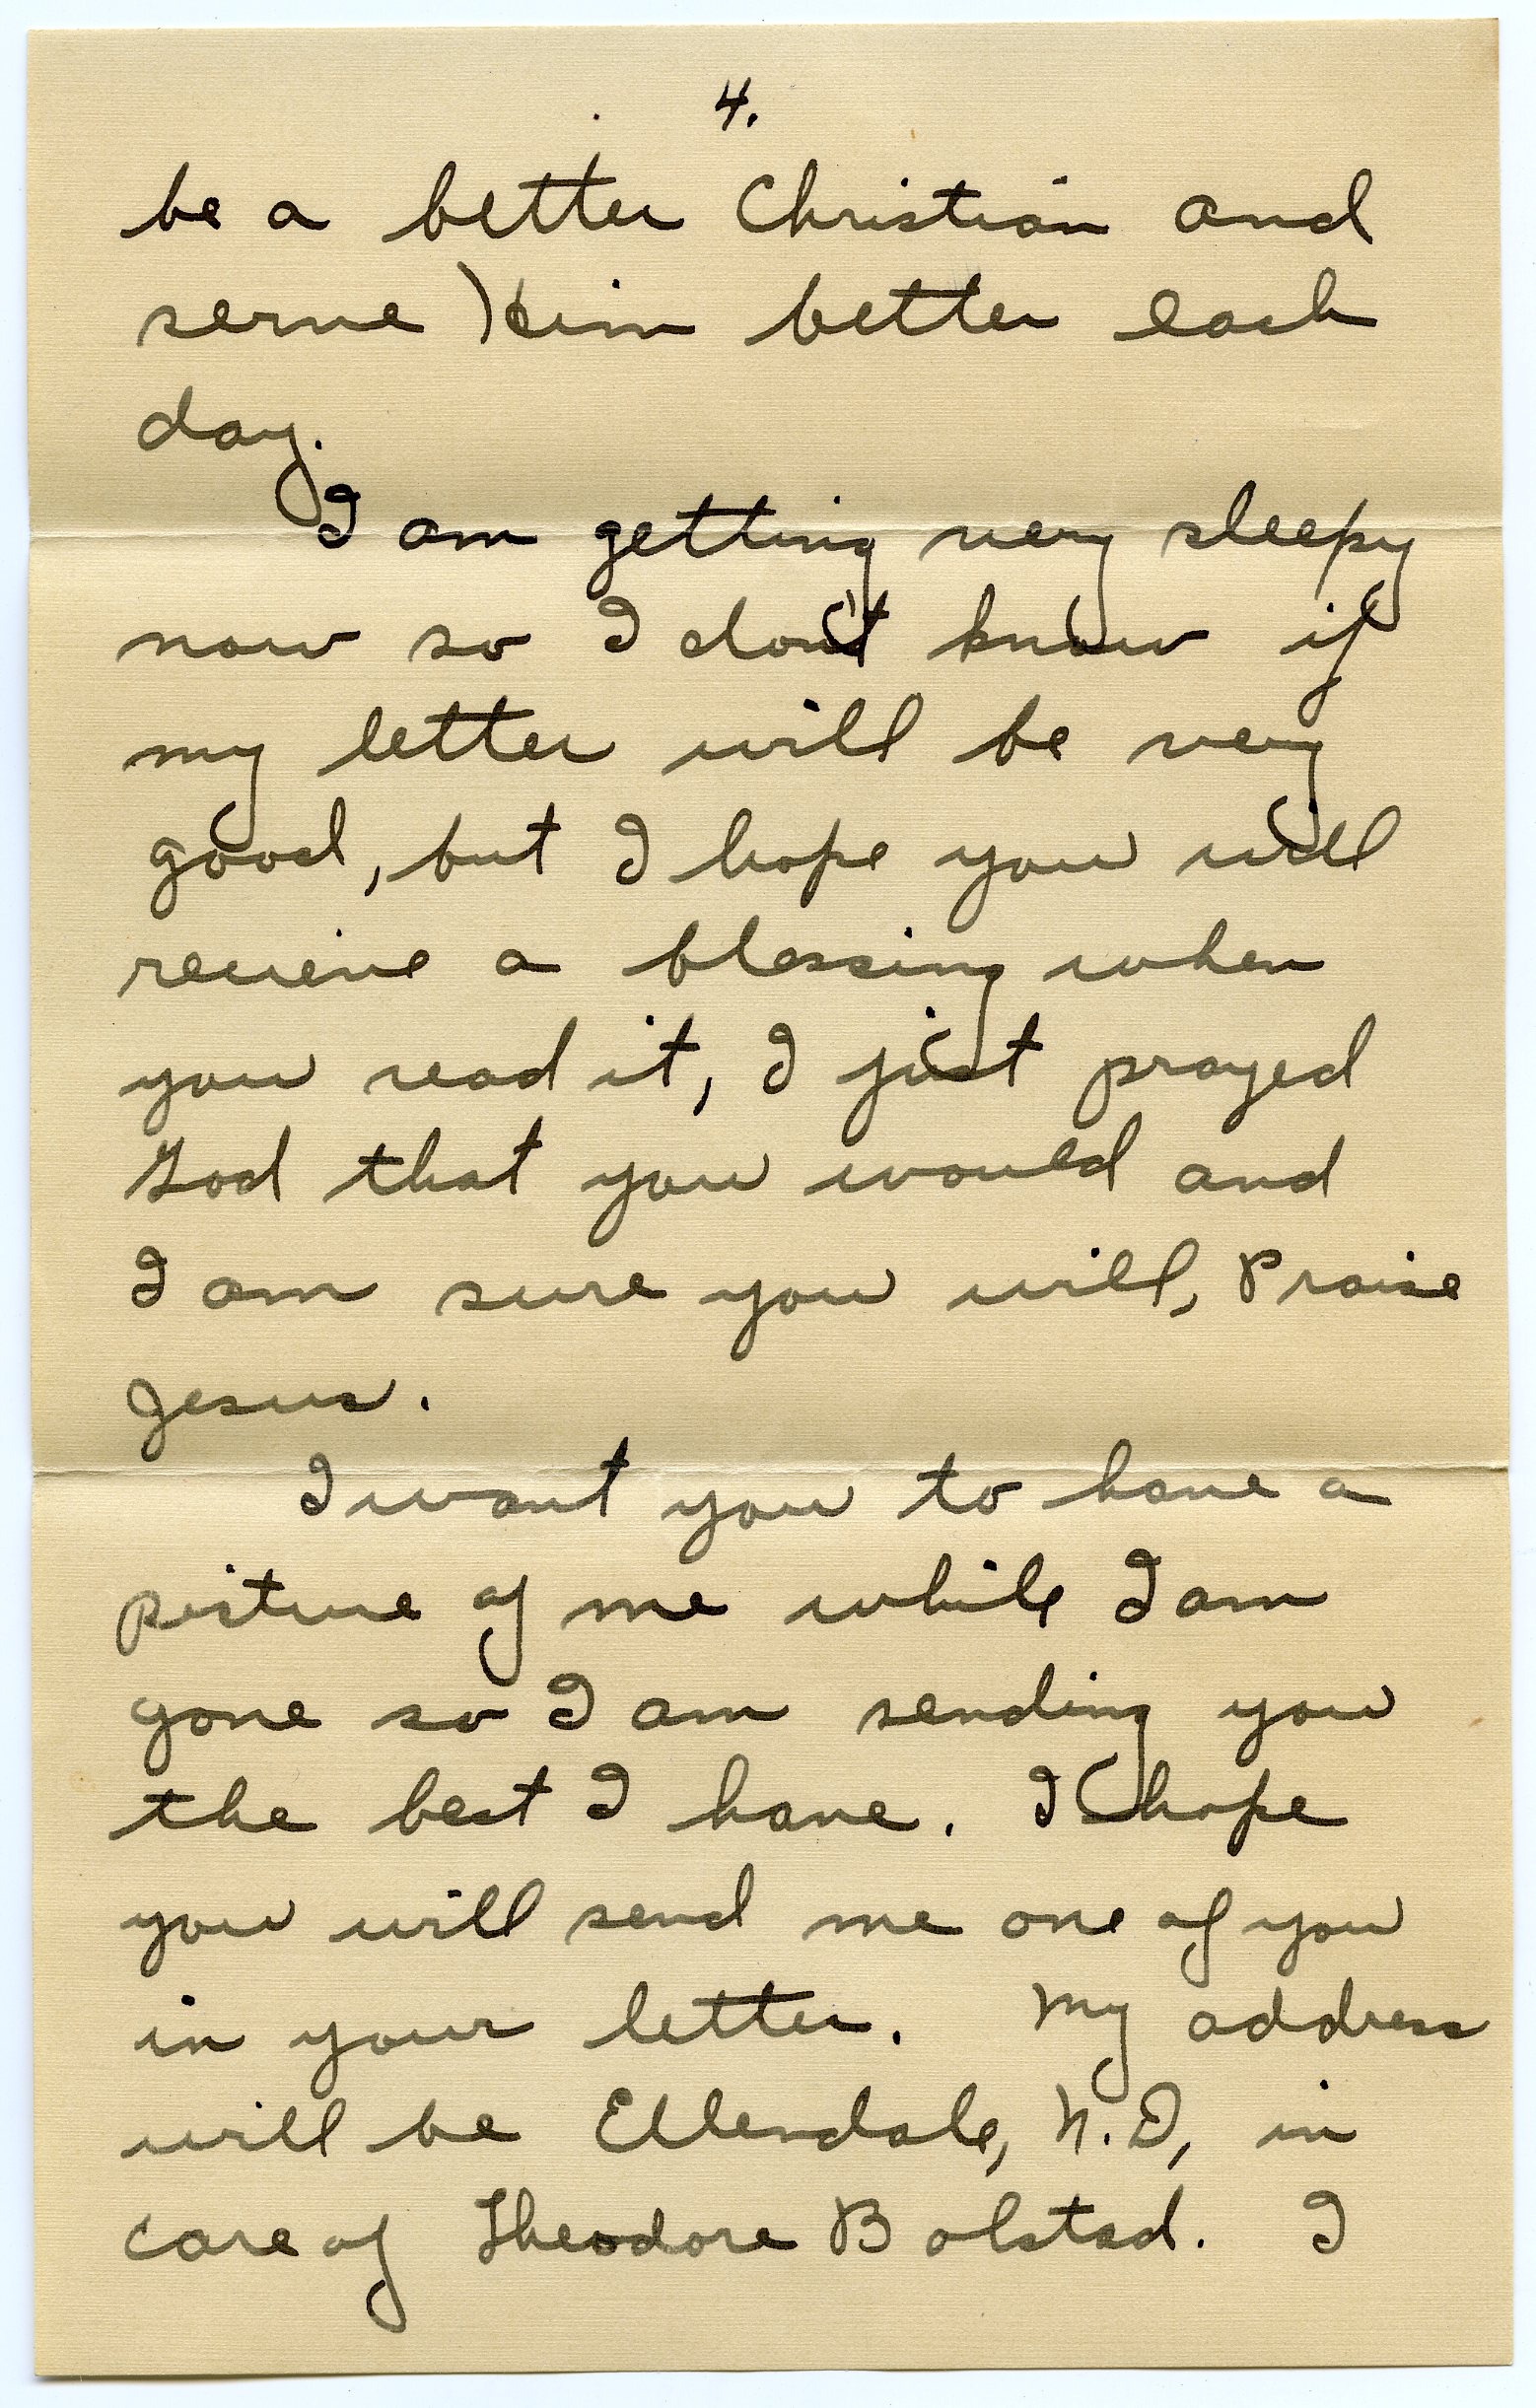 4.
be a better Christian and
serve Him better each
day.
I am getting very sleepy
now so I don't know if
my letter will be very
good, but I hope you will
recieve a blessing when
you read it, I just prayed
God that you would and
I am sure you will, Praise
Jesus.
I want you to have a
picture of me while I am
gone so I am sending you
the best I have. I hope
you will send me one of you
in your letter. My address
will be Ellendale, N.D, in
care of Theodore Bolstad. I